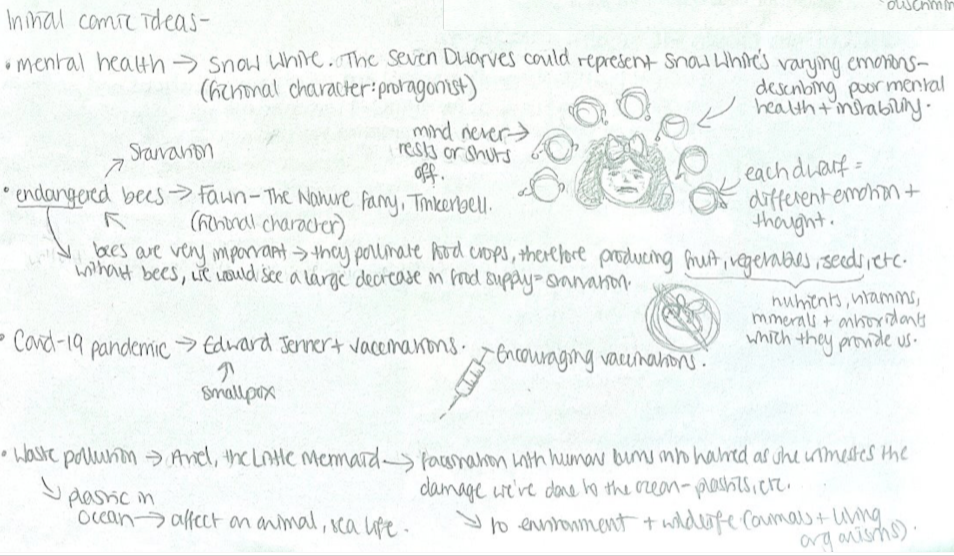 discrimin
Initial comic ideas-
• mental health → Snow White. The Seven Dwarves could represent Snow White's varying emotions-
(fictional character: protagonist)
describing poor mental
health + instability.
mind never →
rests or shuts
off.
each dwarf =
different emotion +
thought.
Starvation
• endangered bees → Fawn - The Nature Fairy, Tinkerbell.
(fictional character)
bees are very important → they pollinate food crops, therefore producing fruit, vegetables, seeds, etc.
without bees, we would see a large decrease in food supply = starvation.
nutrients, vitamins,
minerals + antioxidants
which they provide us.
• Covid-19 pandemic → Edward Jenner + vaccinations.
smallpox
Encouraging vaccinations.
• Waste pollution → Ariel, the Little Mermaid → fascination with human turns into hatred as she witnesses the
damage we've done to the ocean - plastics, etc.
plastic in
ocean → affect on animal, sea life.
to environment + wildlife (animals + living
organisms).